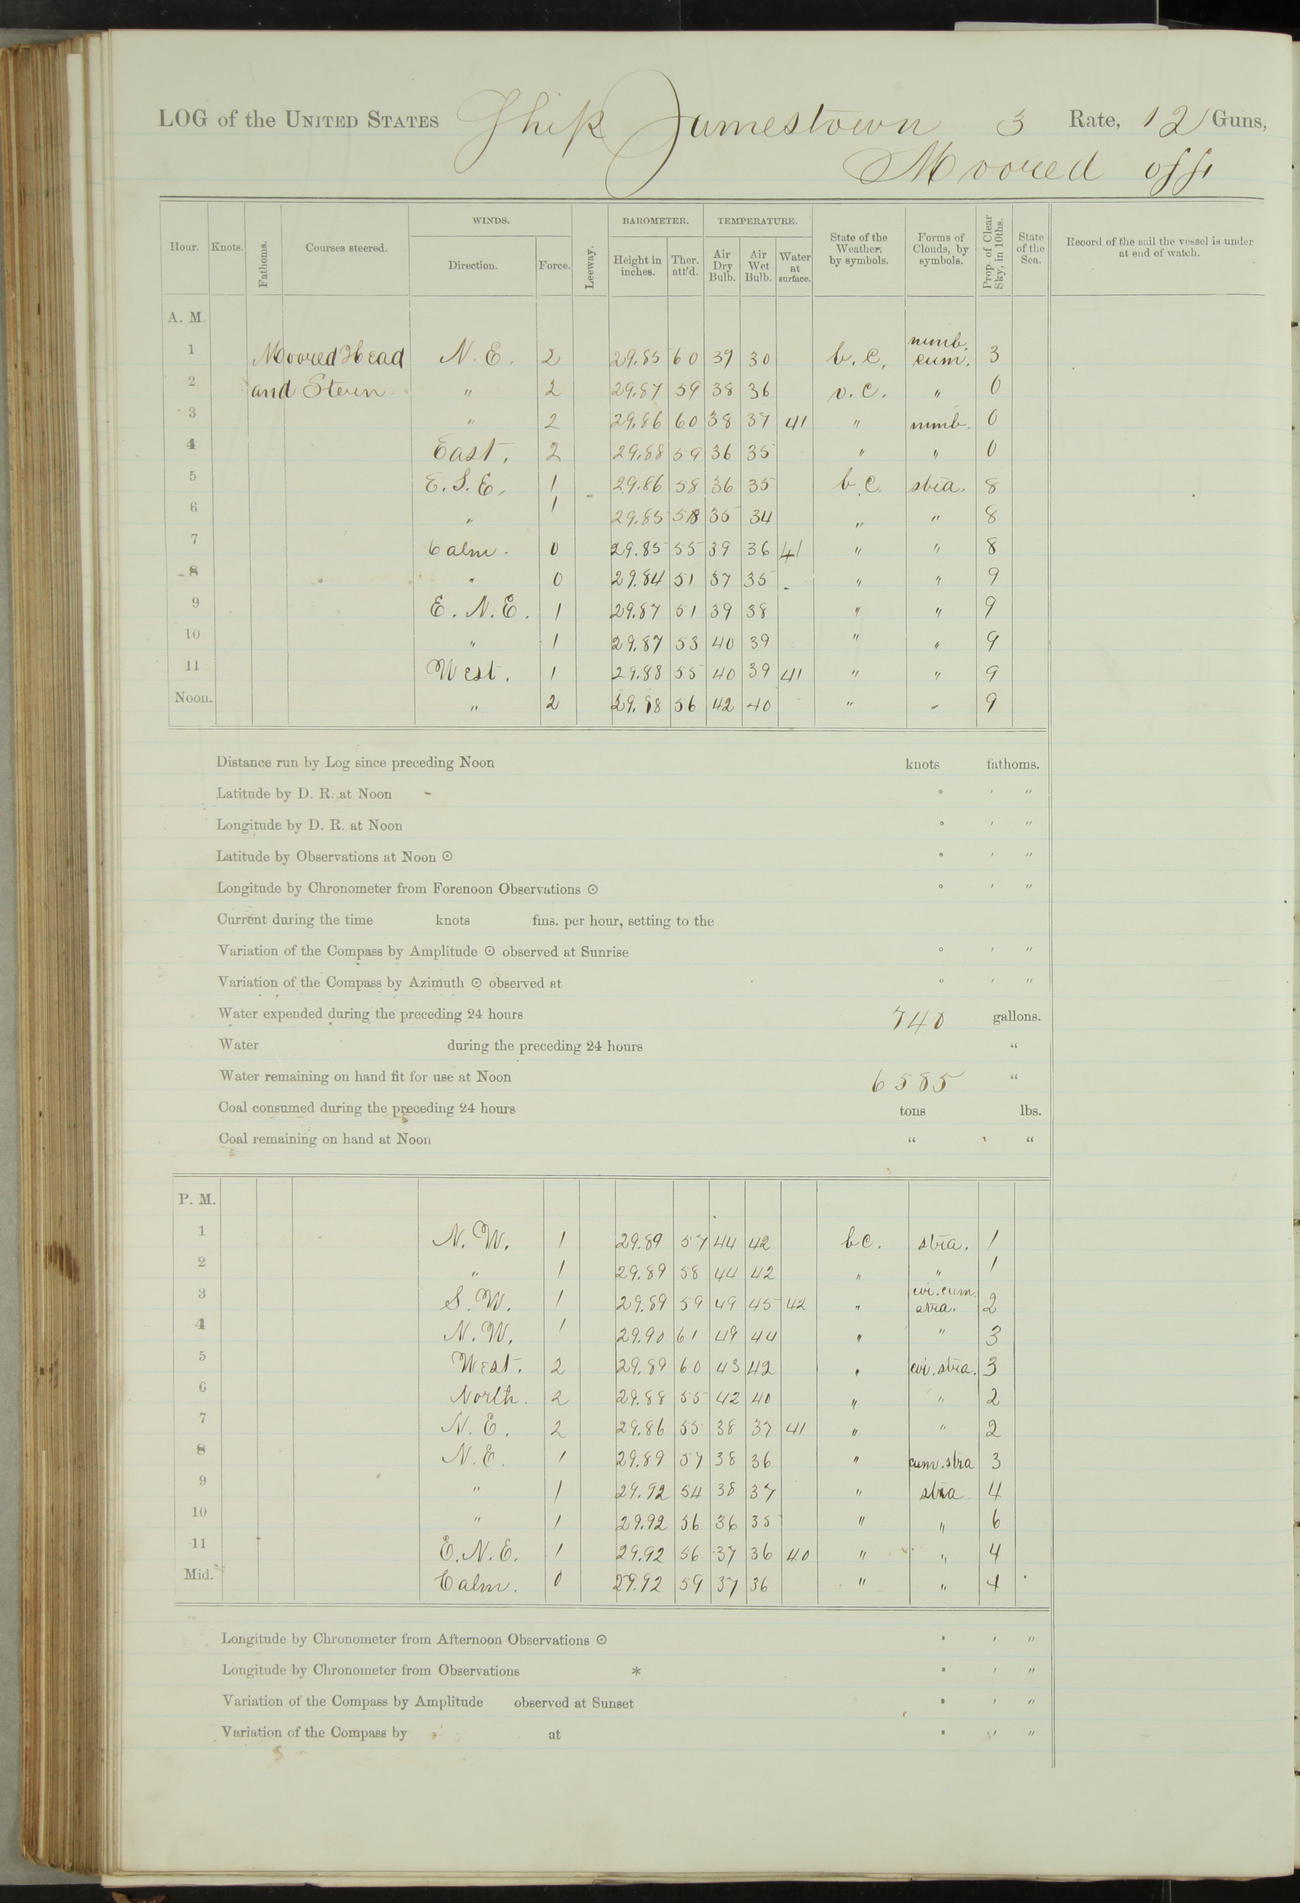 LOG of the UNITED STATES Ship Jamestown 3 Rate, 12 Guns,
Moored off
Hour. Knots. Fathoms. Courses steered. WINDS. Direction. Force. Leeway. BAROMETER. Height in inches. Ther. att'd. TEMPERATURE. Air Dry Bulb. Air Wet Bulb. Water at surface. State of the Weather, by symbols. Forms of Clouds, by symbols. Prop. of Clear Sky, in 10ths. State of the Sea. Record of the sail the vessel is under at end of watch.
A. M.
1 Moored Head N. E. 2 29.85 60 39 30 b. c. nimb. cum. 3
2 and Stern " 2 29.87 59 38 36 o. c. " 0
3 " 2 29.86 60 38 37 41 " nimb. 0
4 East. 2 29.88 59 36 35 " " 0
5 E. S. E. 1 29.86 58 36 35 b. c. stra. 8
6 " 1 29.85 58 35 34 " " 8
7 Calm. 0 29.85 55 39 36 41 " " 8
8 " 0 29.84 51 37 35 " " 9
9 E. N. E. 1 29.87 51 39 38 " " 9
10 " 1 29.87 53 40 39 " " 9
11 West. 1 29.88 55 40 39 41 " " 9
Noon. " 2 29.88 56 42 40 " " 9
Distance run by Log since preceding Noon knots fathoms.
Latitude by D. R. at Noon ° ′ ″
Longitude by D. R. at Noon ° ′ ″
Latitude by Observations at Noon ⊙ ° ′ ″
Longitude by Chronometer from Forenoon Observations ⊙ ° ′ ″
Current during the time knots fms. per hour, setting to the
Variation of the Compass by Amplitude ⊙ observed at Sunrise ° ′ ″
Variation of the Compass by Azimuth ⊙ observed at ° ′ ″
Water expended during the preceding 24 hours 740 gallons.
Water during the preceding 24 hours "
Water remaining on hand fit for use at Noon 6585 "
Coal consumed during the preceding 24 hours tons lbs.
Coal remaining on hand at Noon " "
P. M.
1 N. W. 1 29.89 57 44 42 b c. stra. 1
2 " 1 29.89 58 44 42 " " 1
3 S. W. 1 29.89 59 49 45 42 " cir. cum. stra. 2
4 N. W. 1 29.90 61 49 44 " " 3
5 West. 2 29.89 60 43 42 " cir. stra. 3
6 North. 2 29.88 55 42 40 " " 2
7 N. E. 2 29.86 55 38 37 41 " " 2
8 N. E. 1 29.89 57 38 36 " cum. stra 3
9 " 1 29.92 54 38 37 " stra 4
10 " 1 29.92 56 36 35 " " 6
11 E. N. E. 1 29.92 56 37 36 40 " " 4
Mid. Calm. 0 29.92 59 37 36 " " 4
Longitude by Chronometer from Afternoon Observations ⊙ ° ′ ″
Longitude by Chronometer from Observations * ° ′ ″
Variation of the Compass by Amplitude observed at Sunset ° ′ ″
Variation of the Compass by at ° ′ ″